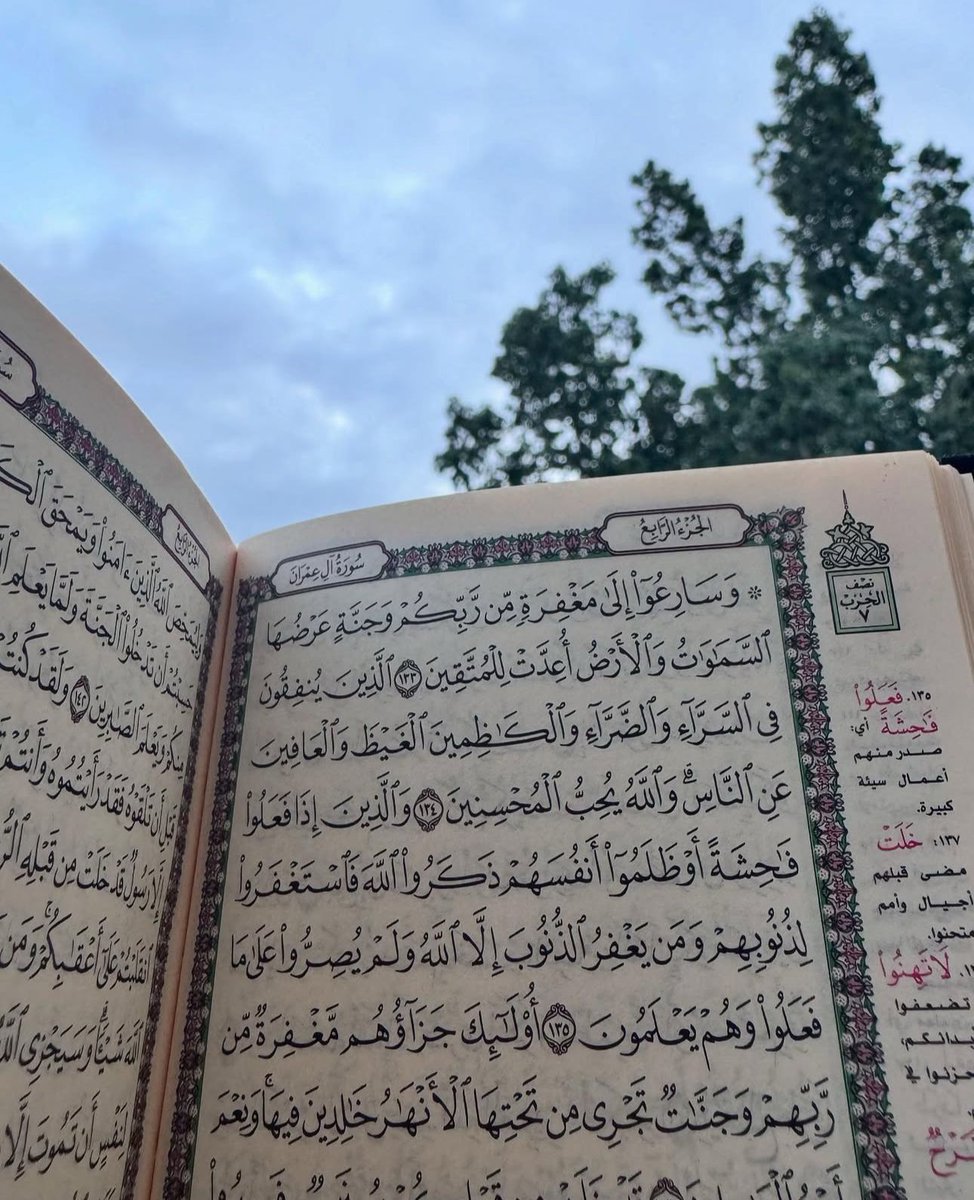 الجُزْءُ الرَّابِعُ
سُورَةُ آلِ عِمْرَانَ
۞ وَسَارِعُوٓاْ إِلَىٰ مَغْفِرَةٍ مِّن رَّبِّكُمْ وَجَنَّةٍ عَرْضُهَا
ٱلسَّمَٰوَٰتُ وَٱلْأَرْضُ أُعِدَّتْ لِلْمُتَّقِينَ ١٣٣ ٱلَّذِينَ يُنفِقُونَ
فِي ٱلسَّرَّآءِ وَٱلضَّرَّآءِ وَٱلْكَٰظِمِينَ ٱلْغَيْظَ وَٱلْعَافِينَ
عَنِ ٱلنَّاسِۗ وَٱللَّهُ يُحِبُّ ٱلْمُحْسِنِينَ ١٣٤ وَٱلَّذِينَ إِذَا فَعَلُواْ
فَٰحِشَةً أَوْ ظَلَمُوٓاْ أَنفُسَهُمْ ذَكَرُواْ ٱللَّهَ فَٱسْتَغْفَرُواْ
لِذُنُوبِهِمْ وَمَن يَغْفِرُ ٱلذُّنُوبَ إِلَّا ٱللَّهُ وَلَمْ يُصِرُّواْ عَلَىٰ مَا
فَعَلُواْ وَهُمْ يَعْلَمُونَ ١٣٥ أُوْلَٰٓئِكَ جَزَآؤُهُم مَّغْفِرَةٌ مِّن
رَّبِّهِمْ وَجَنَّٰتٌ تَجْرِي مِن تَحْتِهَا ٱلْأَنْهَٰرُ خَٰلِدِينَ فِيهَاۚ وَنِعْمَ
نصف
الحزب
٧
١٣٥. فَعَلُواْ
فَٰحِشَةً أي:
صدر منهم
أعمال سيئة
كبيرة.
١٣٧: خَلَتْ
مضى قبلهم
أجيال وأمم
لَا تَهِنُواْ
تضعفوا
الجُزْءُ الرَّابِعُ
وَلِيُمَحِّصَ ٱللَّهُ ٱلَّذِينَ ءَامَنُواْ وَيَمْحَقَ
حَسِبْتُمْ أَن تَدْخُلُواْ ٱلْجَنَّةَ وَلَمَّا يَعْلَمِ
مِنكُمْ وَيَعْلَمَ ٱلصَّٰبِرِينَ ١٤٢ وَلَقَدْ كُنتُمْ
قَبْلِ أَن تَلْقَوْهُ فَقَدْ رَأَيْتُمُوهُ وَأَنتُمْ
إِلَّا رَسُولٌ قَدْ خَلَتْ مِن قَبْلِهِ
ٱنقَلَبْتُمْ عَلَىٰٓ أَعْقَٰبِكُمْۚ وَمَن
ٱللَّهَ شَيْـًٔاۗ وَسَيَجْزِي ٱللَّهُ
لِنَفْسٍ أَن تَمُوتَ إِلَّا